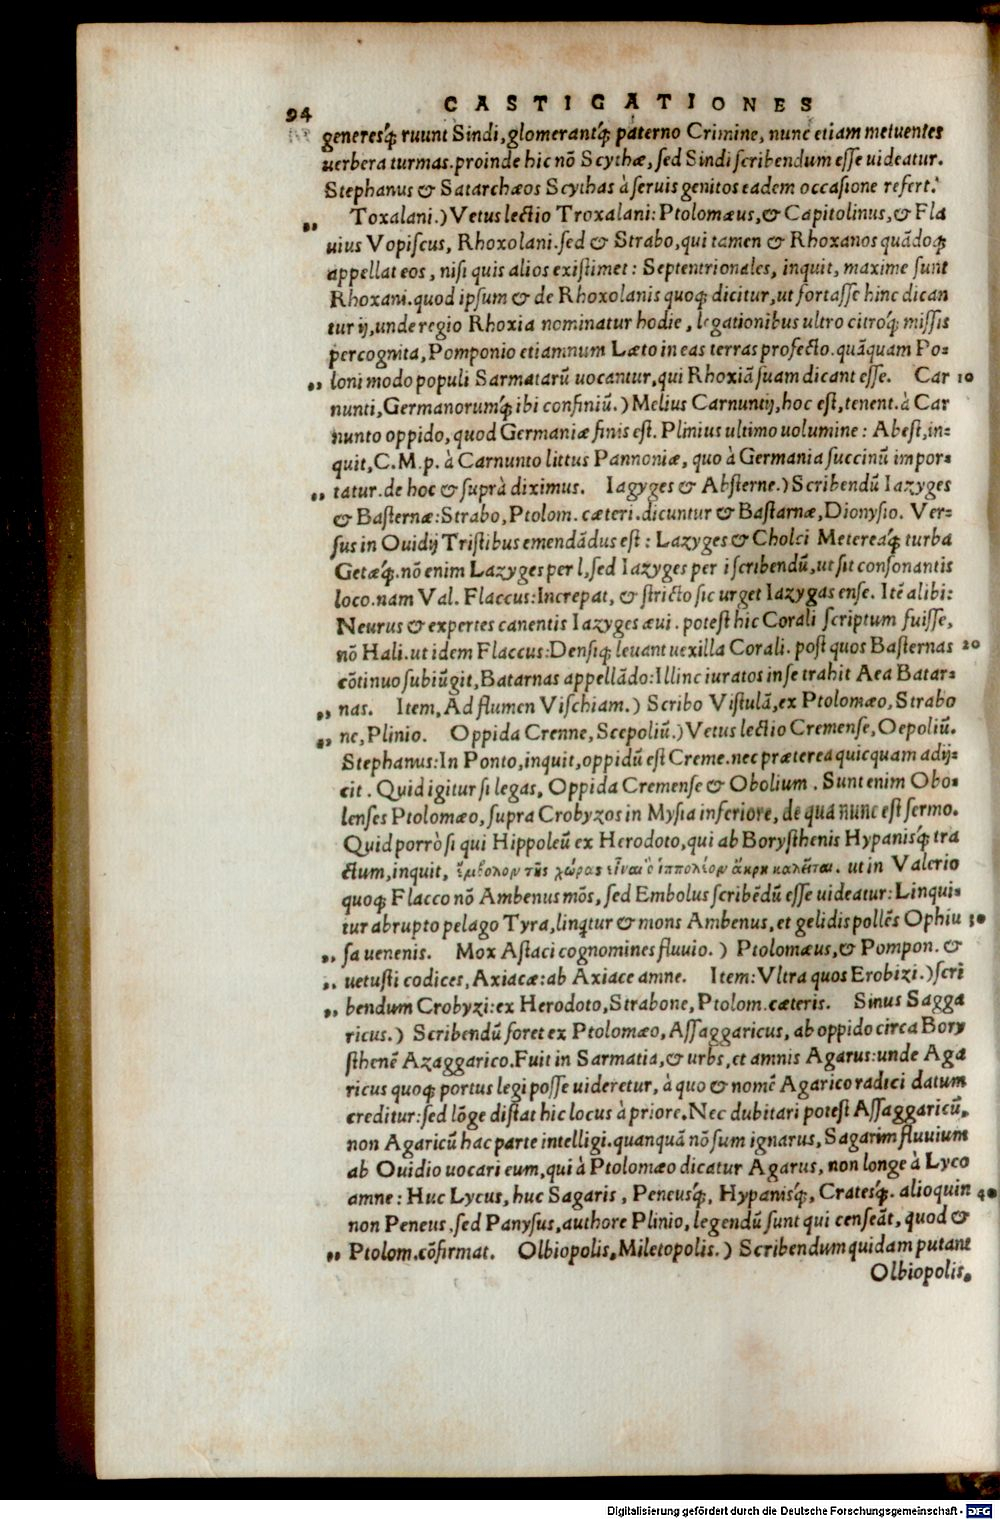 94
CASTIGATIONES
generesq́; ruunt Sindi, glomerantq́; paterno Crimine, nunc etiam metuentes
uerbera turmas. proinde hic nō Scythæ, sed Sindi scribendum esse uideatur.
Stephanus & Satarchæos Scythas à seruis genitos eadem occasione refert.
„ Toxalani.) Vetus lectio Troxalani: Ptolomæus, & Capitolinus, & Fla
uius Vopiscus, Rhoxolani. sed & Strabo, qui tamen & Rhoxanos quādoq;
appellat eos, nisi quis alios existimet: Septentrionales, inquit, maxime sunt
Rhoxani. quod ipsum & de Rhoxolanis quoq; dicitur, ut fortasse hinc dican
tur ij, unde regio Rhoxia nominatur hodie, legationibus ultro citroq́; missis
percognita, Pomponio etiamnum Læto in eas terras profecto. quāquam Po-
„ loni modo populi Sarmatarū uocantur, qui Rhoxiā suam dicant esse. Car 10
nunti, Germanorumq́; ibi confiniū.) Melius Carnuntij, hoc est, tenent. à Car
nunto oppido, quod Germaniæ finis est. Plinius ultimo uolumine: Abest, in-
quit, C.M.p. à Carnunto littus Pannoniæ, quo à Germania succinū impor-
„ tatur. de hoc & suprà diximus. Iagyges & Absterne.) Scribendū Iazyges
& Basternæ: Strabo, Ptolom. cæteri. dicuntur & Bastarnæ, Dionysio. Ver-
sus in Ouidij Tristibus emendādus est: Lazyges & Cholci Metereaq́; turba
Getæq́;. nō enim Lazyges per l, sed Iazyges per i scribendū, ut sit consonantis
loco. nam Val. Flaccus: Increpat, & stricto sic urget Iazygas ense. Itē alibi:
Neurus & expertes canentis Iazyges æui. potest hic Corali scriptum fuisse,
nō Hali. ut idem Flaccus: Densiq; leuant uexilla Corali. post quos Basternas 20
cōtinuo subiūgit, Batarnas appellādo: Illinc iuratos in se trahit Aea Batar-
„ nas. Item, Ad flumen Vischiam.) Scribo Vistulā, ex Ptolomæo, Strabo
„ ne, Plinio. Oppida Crenne, Scepoliū.) Vetus lectio Cremense, Oepoliū.
Stephanus: In Ponto, inquit, oppidū est Creme. nec præterea quicquam adij-
cit. Quid igitur si legas, Oppida Cremense & Obolium. Sunt enim Obo-
lenses Ptolomæo, supra Crobyzos in Mysia inferiore, de qua nunc est sermo.
Quid porrò si qui Hippoleū ex Herodoto, qui ab Borysthenis Hypanisq́; tra
ctum, inquit, ἔμβολον τῆς χώρας εἶναι ὁ ἱππολέον ἄκρη καλεῖται. ut in Valerio
quoq; Flacco nō Ambenus mōs, sed Embolus scribēdū esse uideatur: Linqui-
tur abrupto pelago Tyra, linq̃tur & mons Ambenus, et gelidis pollēs Ophiu 30
„ sa uenenis. Mox Astaci cognomines fluuio.) Ptolomæus, & Pompon. &
„ uetusti codices, Axiacæ: ab Axiace amne. Item: Vltra quos Erobizi.) scri
„ bendum Crobyzi: ex Herodoto, Strabone, Ptolom. cæteris. Sinus Sagga
ricus.) Scribendū foret ex Ptolomæo, Assaggaricus, ab oppido circa Bory
sthenē Azaggarico. Fuit in Sarmatia, & urbs, et amnis Agarus: unde Aga
ricus quoq; portus legi posse uideretur, à quo & nomē Agarico radici datum
creditur: sed lōge distat hic locus à priore. Nec dubitari potest Assaggaricū,
non Agaricū hac parte intelligi. quanquā nō sum ignarus, Sagarim fluuium
ab Ouidio uocari eum, qui à Ptolomæo dicatur Agarus, non longe à Lyco
amne: Huc Lycus, huc Sagaris, Peneusq́;, Hypanisq́;, Cratesq́;. alioquin 40
non Peneus, sed Panysus, authore Plinio, legendū sunt qui censeāt, quod &
„ Ptolom. cōfirmat. Olbiopolis, Miletopolis.) Scribendum quidam putant
Olbiopolis,
Digitalisierung gefördert durch die Deutsche Forschungsgemeinschaft - DFG